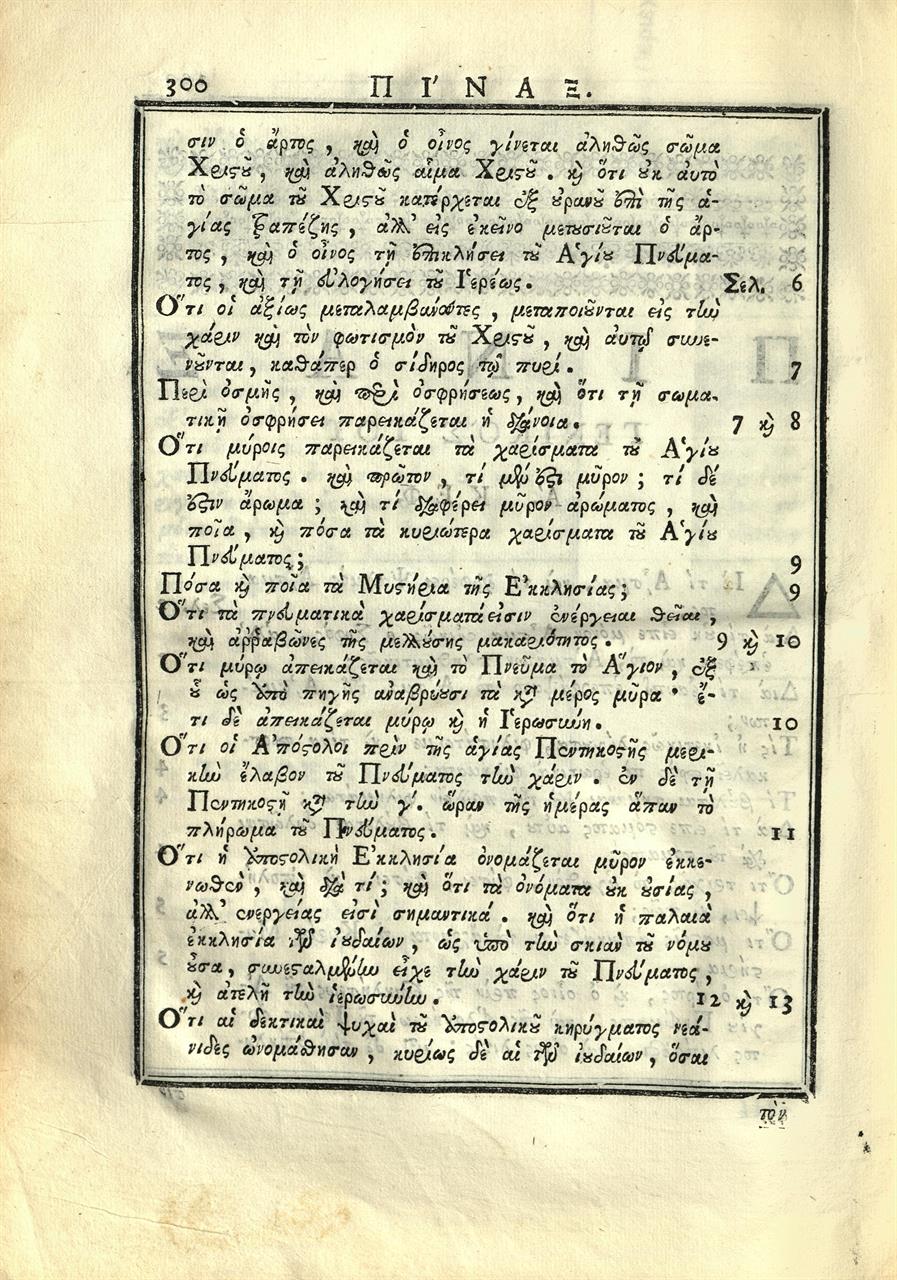 300 ΠΙΝΑΞ.
σιν ὁ ἄρτος, καὶ ὁ οἶνος γίνεται ἀληθῶς σῶμα
Χριστοῦ, καὶ ἀληθῶς αἷμα Χριστοῦ. καὶ ὅτι οὐκ αὐτὸ
τὸ σῶμα τοῦ Χριστοῦ κατέρχεται ἐξ οὐρανοῦ ἐπὶ τῆς ἁ-
γίας Τραπέζης, ἀλλ' εἰς ἐκεῖνο μετουσιοῦται ὁ ἄρ-
τος, καὶ ὁ οἶνος τῇ ἐπικλήσει τοῦ Ἁγίου Πνεύμα-
τος, καὶ τῇ εὐλογήσει τοῦ Ἱερέως. Σελ. 6
Ὅτι οἱ ἀξίως μεταλαμβάνοντες, μεταποιοῦνται εἰς τὴν
χάριν καὶ τὸν φωτισμὸν τοῦ Χριστοῦ, καὶ αὐτῷ συνε-
νοῦνται, καθάπερ ὁ σίδηρος τῷ πυρί. 7
Περὶ ὀσμῆς, καὶ περὶ ὀσφρήσεως, καὶ ὅτι τῇ σωμα-
τικῇ ὀσφρήσει παρεικάζεται ἡ διάνοια. 7 καὶ 8
Ὅτι μύροις παρεικάζεται τὰ χαρίσματα τοῦ Ἁγίου
Πνεύματος. καὶ πρῶτον, τί μέν ἐστι μῦρον; τί δέ
ἐστιν ἄρωμα; καὶ τί διαφέρει μῦρον ἀρώματος, καὶ
ποῖα, καὶ πόσα τὰ κυριώτερα χαρίσματα τοῦ Ἁγίου
Πνεύματος; 9
Πόσα καὶ ποῖα τὰ Μυστήρια τῆς Ἐκκλησίας; 9
Ὅτι τὰ πνευματικὰ χαρίσματά εἰσιν ἐνέργειαι θεῖαι,
καὶ ἀῤῥαβῶνες τῆς μελλούσης μακαριότητος. 9 καὶ 10
Ὅτι μύρῳ ἀπεικάζεται καὶ τὸ Πνεῦμα τὸ Ἅγιον, ἐξ
οὗ ὡς ὑπὸ πηγῆς ἀναβρύουσι τὰ κατὰ μέρος μῦρα· ἔ-
τι δὲ ἀπεικάζεται μύρῳ καὶ ἡ Ἱερωσύνη. 10
Ὅτι οἱ Ἀπόστολοι πρὶν τῆς ἁγίας Πεντηκοστῆς μερι-
κὴν ἔλαβον τοῦ Πνεύματος τὴν χάριν. ἐν δὲ τῇ
Πεντηκοστῇ κατὰ τὴν γ΄. ὥραν τῆς ἡμέρας ἅπαν τὸ
πλήρωμα τοῦ Πνεύματος. 11
Ὅτι ἡ Ἀποστολικὴ Ἐκκλησία ὀνομάζεται μῦρον ἐκκε-
νωθὲν, καὶ διὰ τί; καὶ ὅτι τὰ ὀνόματα οὐκ οὐσίας,
ἀλλ' ἐνεργείας εἰσὶ σημαντικά. καὶ ὅτι ἡ παλαιὰ
ἐκκλησία τῶν ἰουδαίων, ὡς ὑπὸ τὴν σκιὰν τοῦ νόμου
οὖσα, συνεσταλμένην εἶχε τὴν χάριν τοῦ Πνεύματος,
καὶ ἀτελῆ τὴν ἱερωσύνην. 12 καὶ 13
Ὅτι αἱ δεκτικαὶ ψυχαὶ τοῦ Ἀποστολικοῦ κηρύγματος νεά-
νιδες ὠνομάσθησαν, κυρίως δὲ αἱ τῶν ἰουδαίων, ὅσαι
τὸν